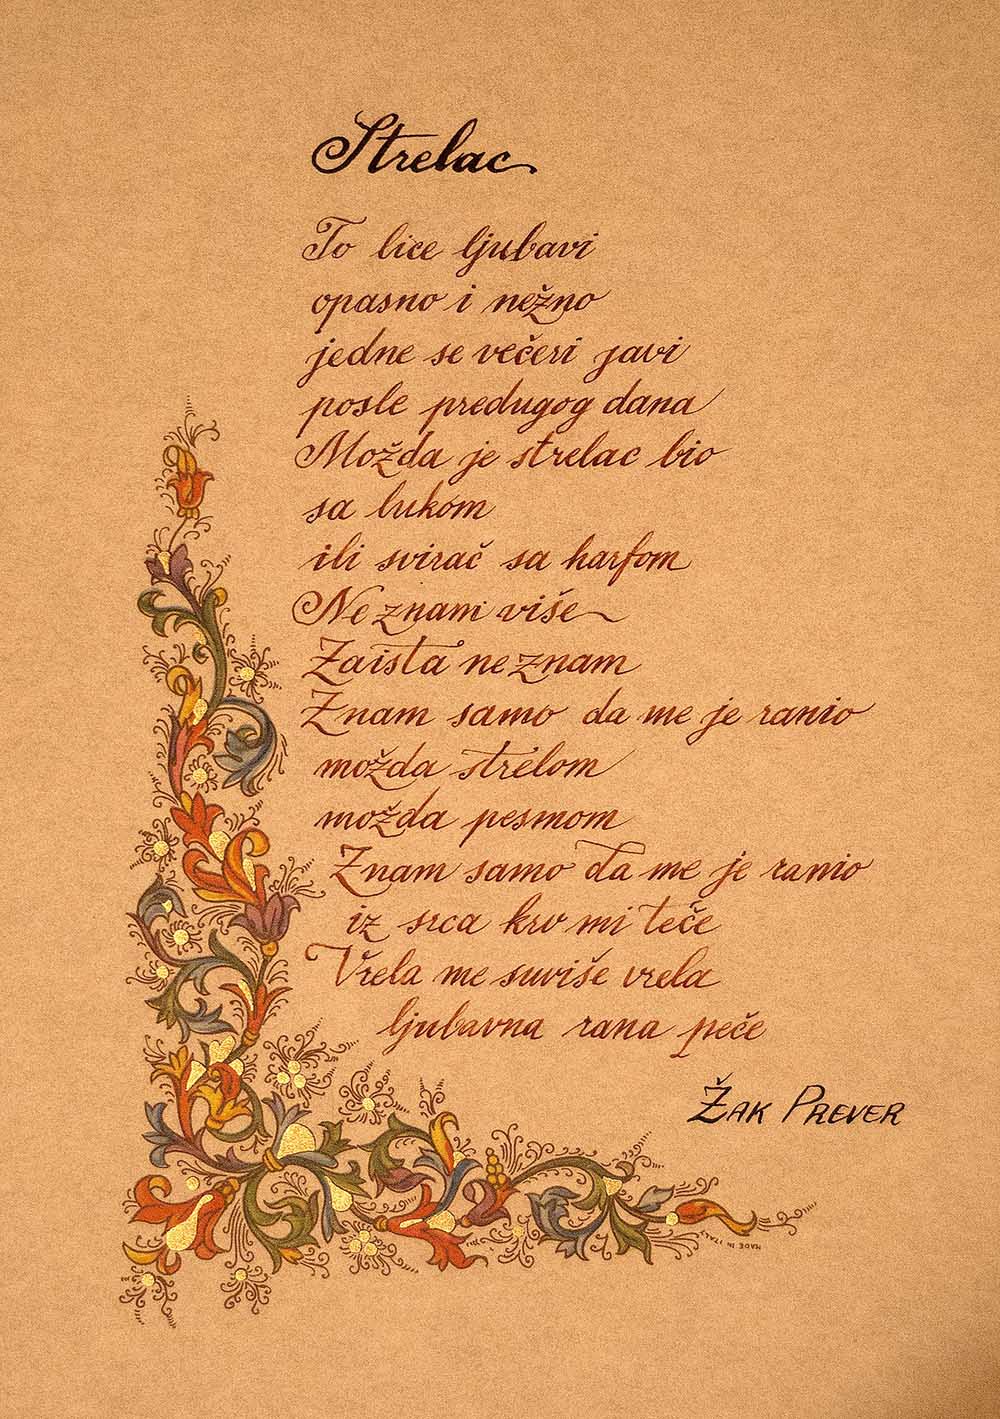 Strelac
To lice ljubavi
opasno i nežno
jedne se večeri javi
posle predugog dana
Možda je strelac bio
sa lukom
ili svirač sa harfom
Ne znam više
Zaista ne znam
Znam samo da me je ranio
možda strelom
možda pesmom
Znam samo da me je ranio
iz srca krv mi teče
Vrela me suviše vrela
ljubavna rana peče
Žak Prever
MADE IN ITALY